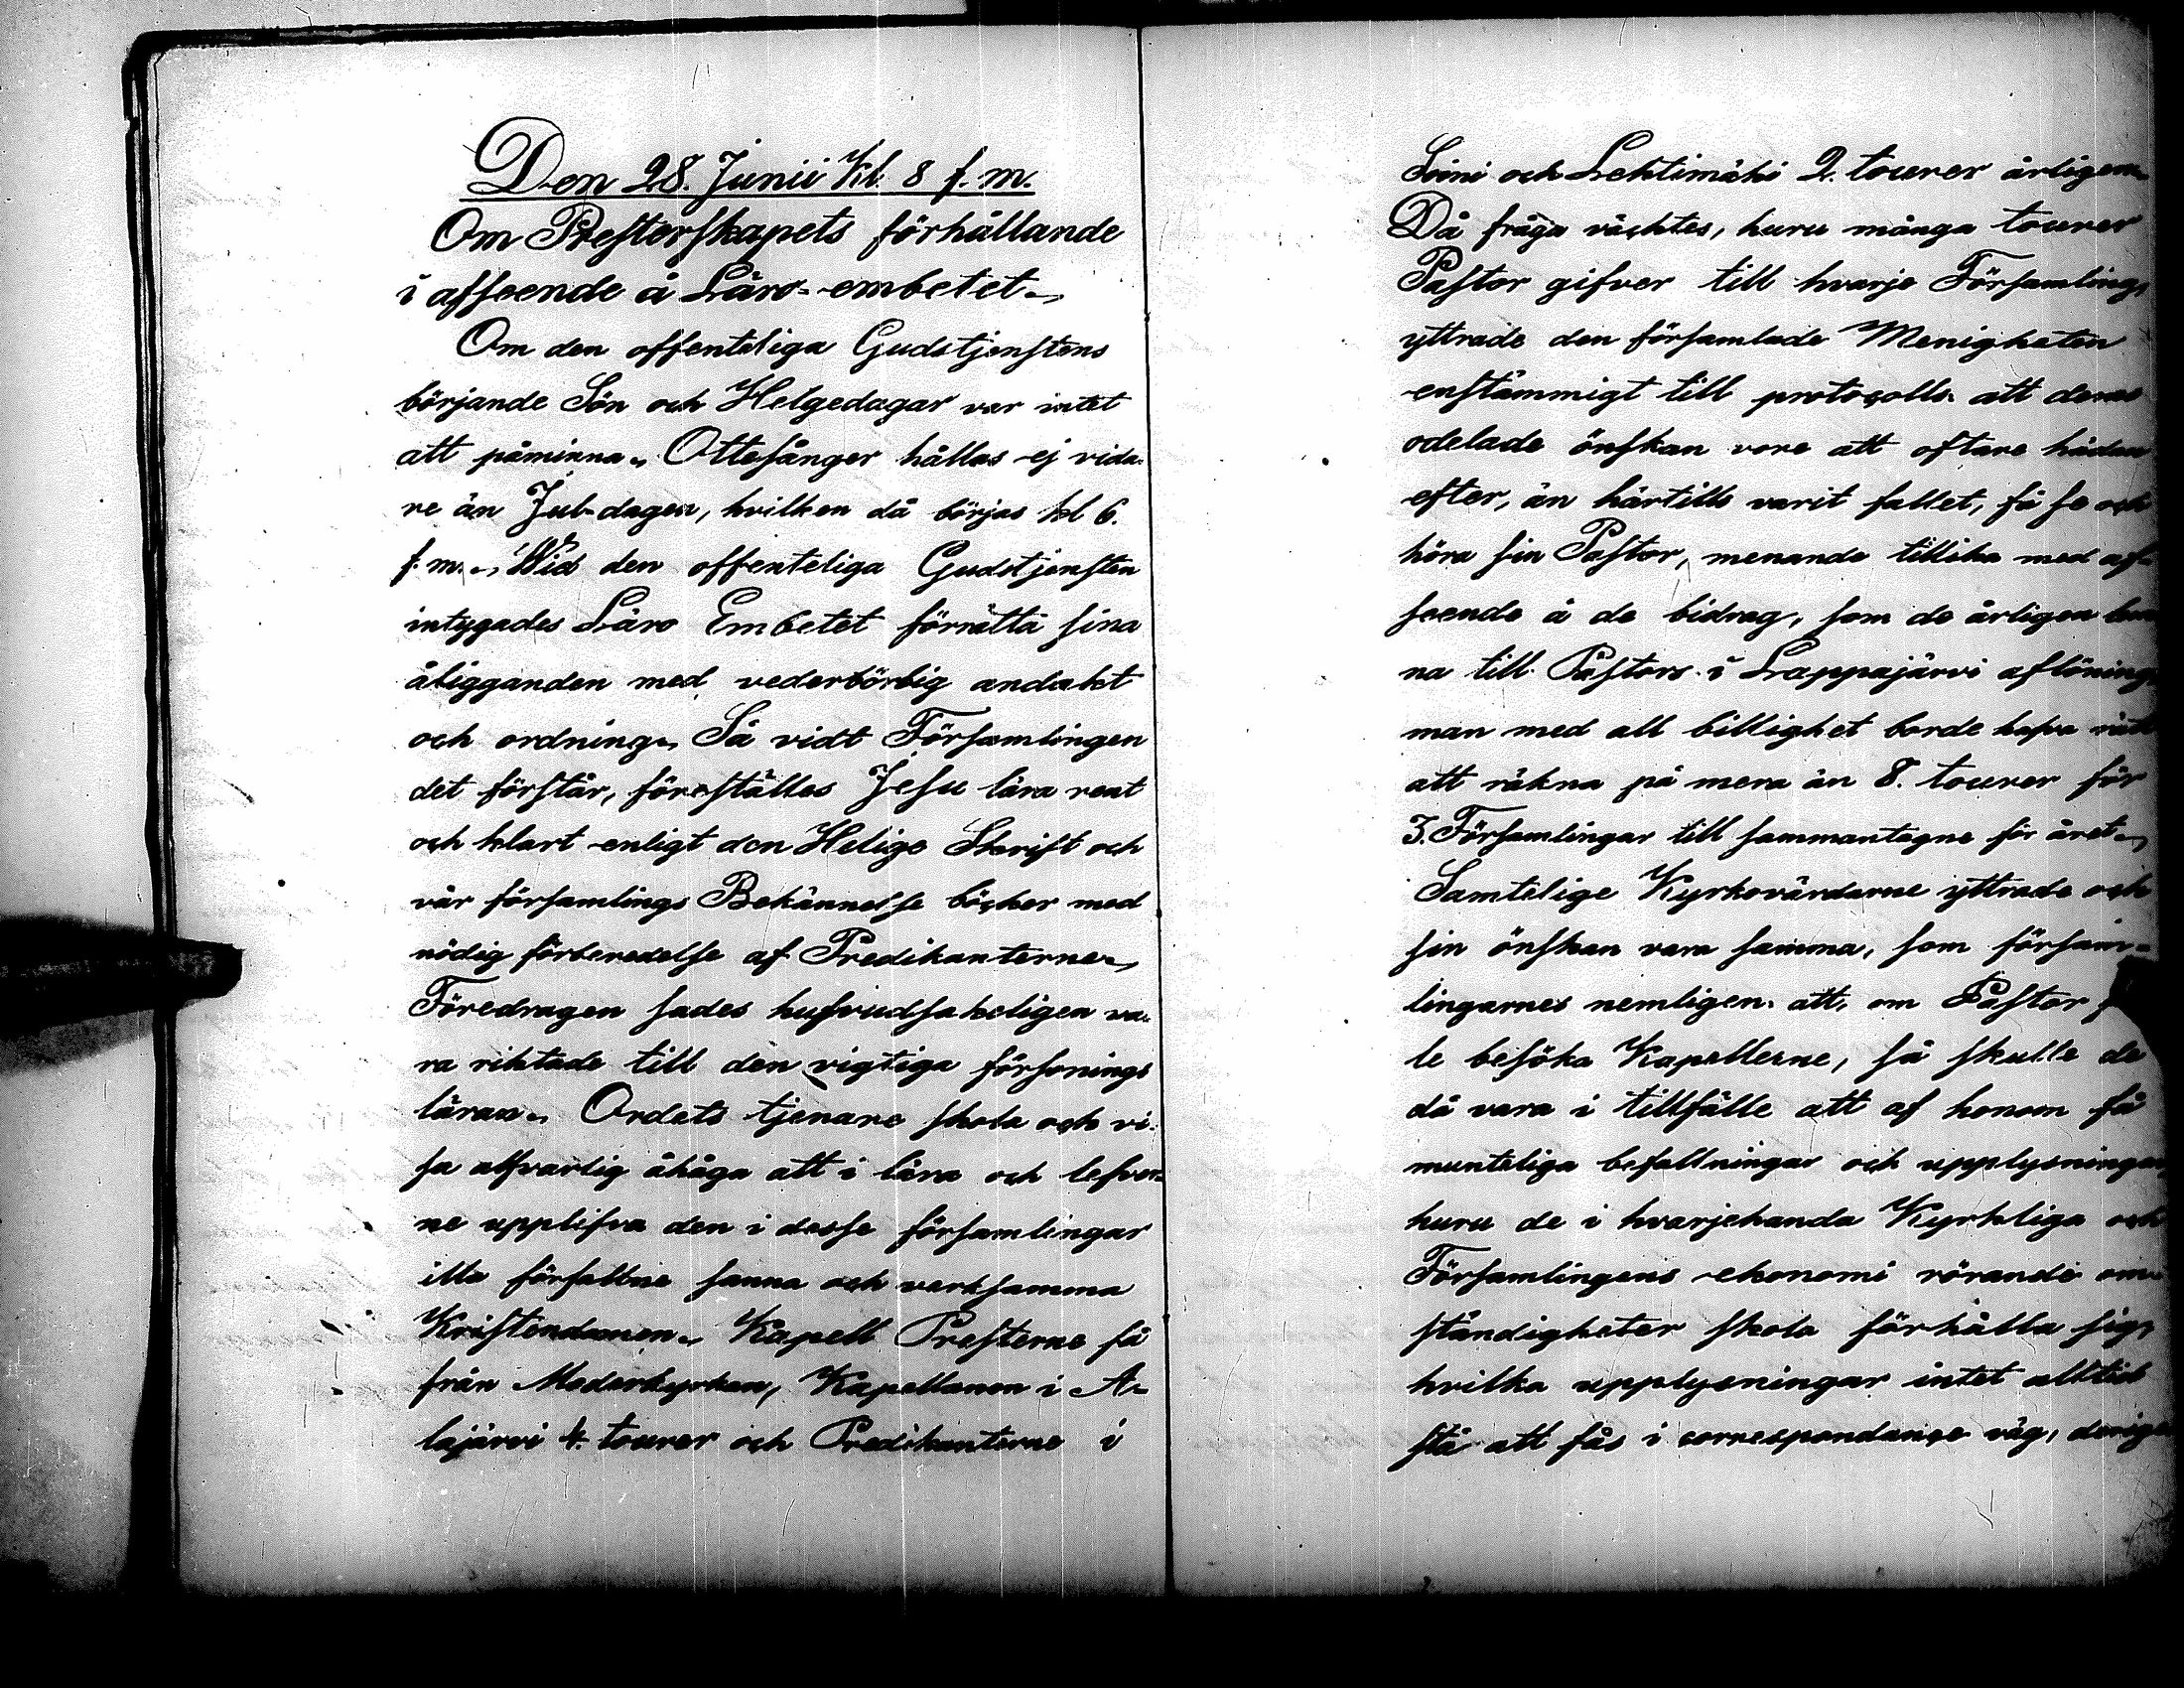 Den 28. Junii Kl. 8 f.m.
Om Presterskapets förhållande
i afseende å Läro-embetet.
Om den offenteliga Gudstjenstens
börjande Sön och Helgedagar var intet
att påminna. Ottesånger hållas ej vida-
re än Jul-dagen, hvilken då börjas kl 6.
f.m. Wid den offenteliga Gudstjensten
intygades Läro Embetet förrätta sina
åligganden med vederbörlig andakt
och ordning. Så vidt Församlingen
det förstår, föreställes Jesu lära rent
och klart enligt den Helige Skrift och
vår församlings Bekännelse böcker med
nödig förberedelse af Predikanterne.
Föredragen sades hufvudsakeligen va-
ra riktade till den vigtiga försonings
läran. Ordets tjenare skola och vi-
sa alfvarlig åhåga att i lära och lefver-
ne upplifva den i desse församlingar
illa förfallne sanna och verksamma
Kristendomen. Kapell Presterne få
från Moderkyrkan, Kapellanen i A-
lajärvi 4. tourer och Predikanterne i
Soini och Lehtimäki 2. tourer årligen.
Då fråga väcktes, huru många tourer
Pastor gifver till hvarje Församling,
yttrade den församlade Menigheten
enstämmigt till protocolls att deras
odelade önskan vore att oftare hädan
efter, än härtills varit fallet, få se och
höra sin Pastor, menande tillika med af-
seende å de bidrag, som de årligen
na till Pastors i Lappajärvi aflöning,
man med all billighet borde hafva rätt
att räkna på mera än 8. tourer för
3. Församlingar till sammantagne för året.
Samtelige Kyrkovärdarne yttrade och
sin önskan vara samma, som försam-
lingarnes nemligen att, om Pastor
le besöka Kapellerne, så skulle de
då vara i tillfälle att af honom få
munteliga befallningar och upplysningar,
huru de i hvarjehanda Kyrkliga och
Församlingens ekonomi rörande om-
ständigheter skola förhålla sig,
hvilka upplysningar intet alltid
stå att fås i correspondance väg,